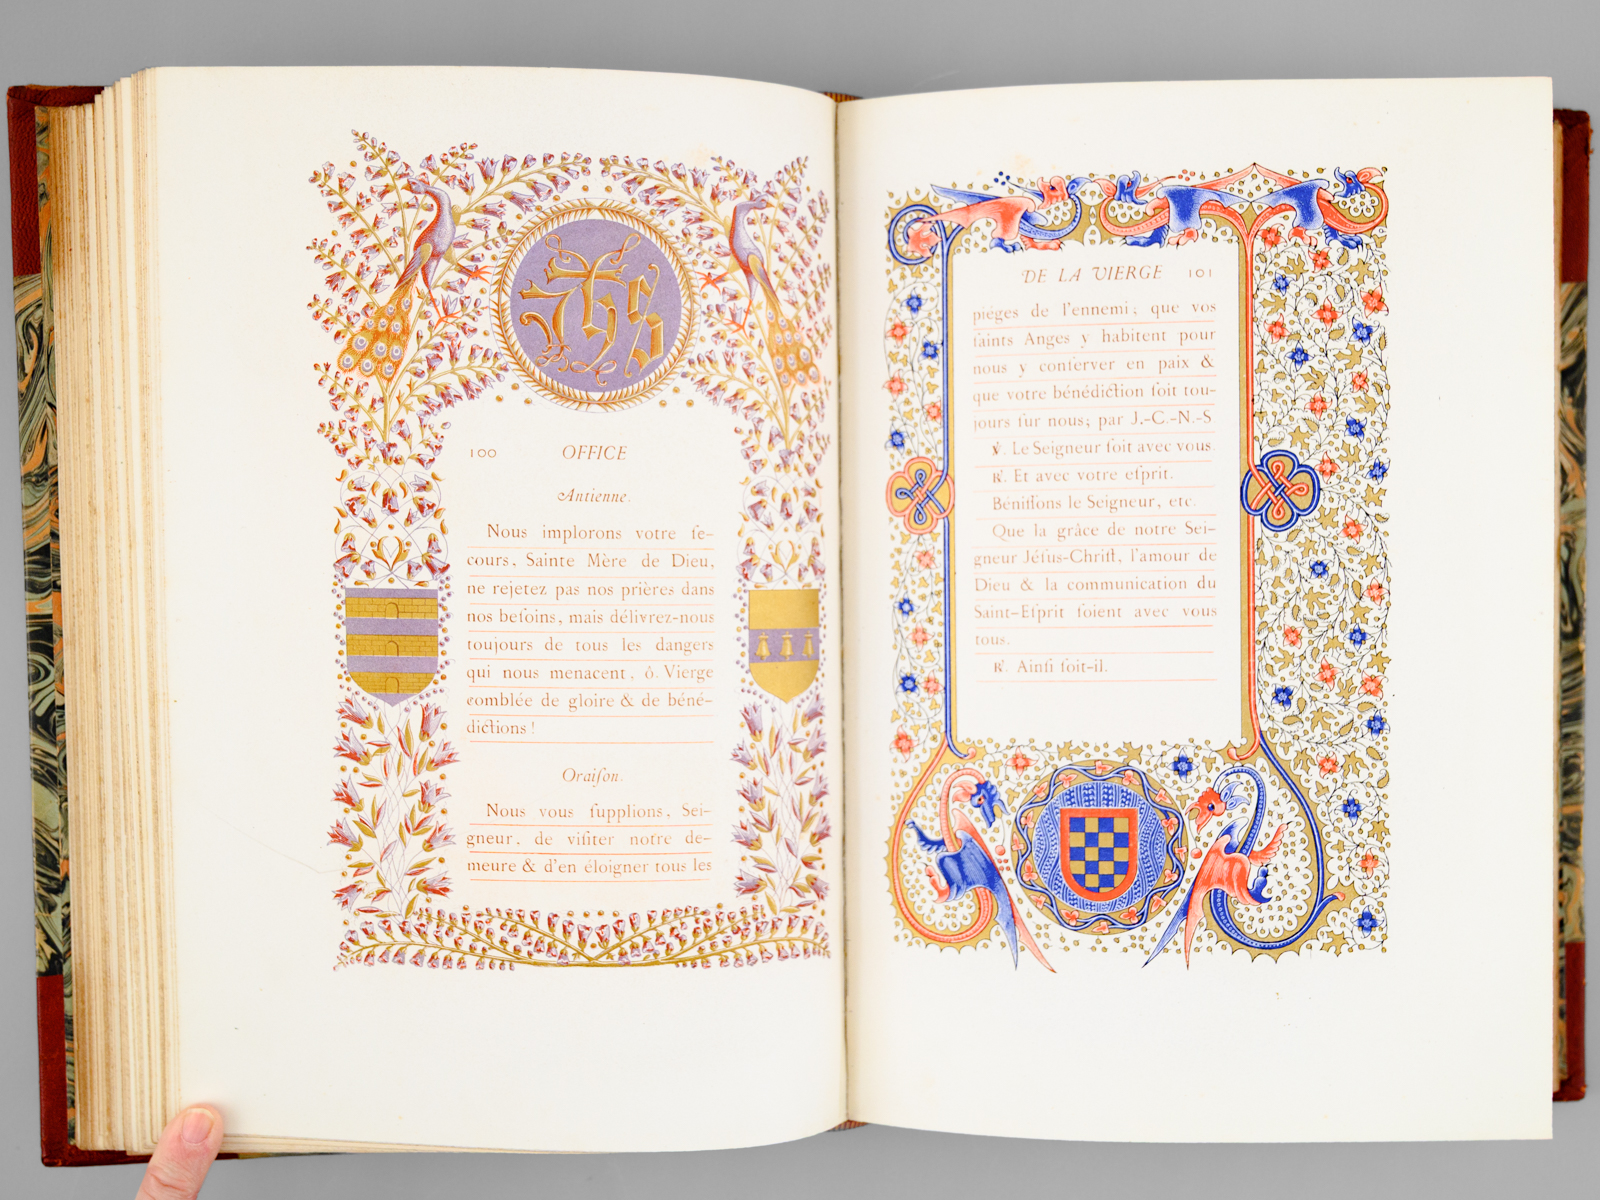 Jhs
100 OFFICE
Antienne.
Nous implorons votre ſe-
cours, Sainte Mère de Dieu,
ne rejetez pas nos prières dans
nos beſoins, mais délivrez-nous
toujours de tous les dangers
qui nous menacent, ô Vierge
comblée de gloire & de béné-
dictions !
Oraiſon.
Nous vous ſupplions, Sei-
gneur, de viſiter notre de-
meure & d'en éloigner tous les
DE LA VIERGE 101
piéges de l'ennemi; que vos
ſaints Anges y habitent pour
nous y conſerver en paix &
que votre bénédiction ſoit tou-
jours ſur nous; par J.-C.-N.-S
℣. Le Seigneur ſoit avec vous.
℟. Et avec votre eſprit.
Béniſſons le Seigneur, etc.
Que la grâce de notre Sei-
gneur Jéſus-Chriſt, l'amour de
Dieu & la communication du
Saint-Eſprit ſoient avec vous
tous.
℟. Ainſi ſoit-il.